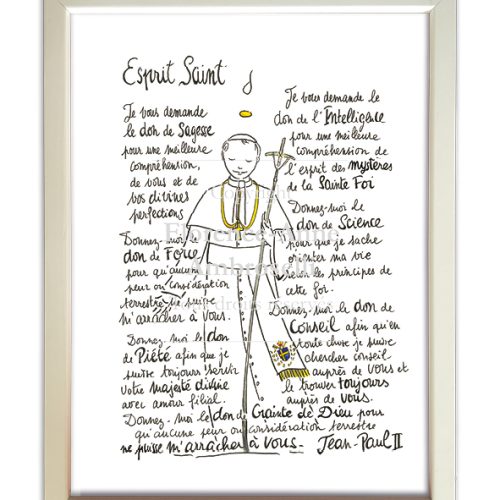 Esprit Saint
Je vous demande
le don de Sagesse
pour une meilleure
compréhension,
de vous et de
vos divines
perfections
Je vous demande le
don de l'Intelligence
pour une meilleure
compréhension de
l'esprit des mystères
de la Sainte Foi
Donnez-moi le
don de Force
pour qu'aucune
peur ou considération
terrestre ne puisse
m'arracher à vous.
Donnez-moi le
don de Science
pour que je sache
orienter ma vie
selon les principes de
cette foi.
Donnez-moi le don de
Conseil afin qu'en
toute chose je puisse
chercher conseil
auprès de vous et
le trouver toujours
auprès de vous.
Donnez-moi le don
de Piété afin que je
puisse toujours servir
votre majesté divine
avec amour filial.
Donnez-moi le don de Crainte de Dieu pour
qu'aucune peur ou considération terrestre
ne puisse m'arracher à vous. Jean-Paul II
Copyright
Florence-Anne
Ambroselli
droits réservés